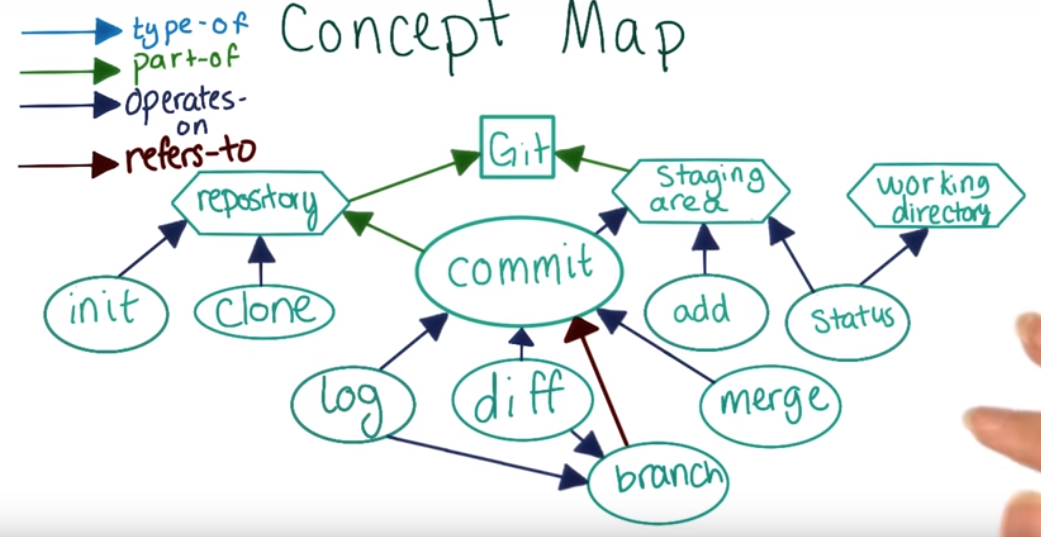 type-of
Concept Map
part-of
operates-
on
refers-to
Git
repository
Staging
area
working
directory
commit
init
clone
add
status
log
diff
merge
branch